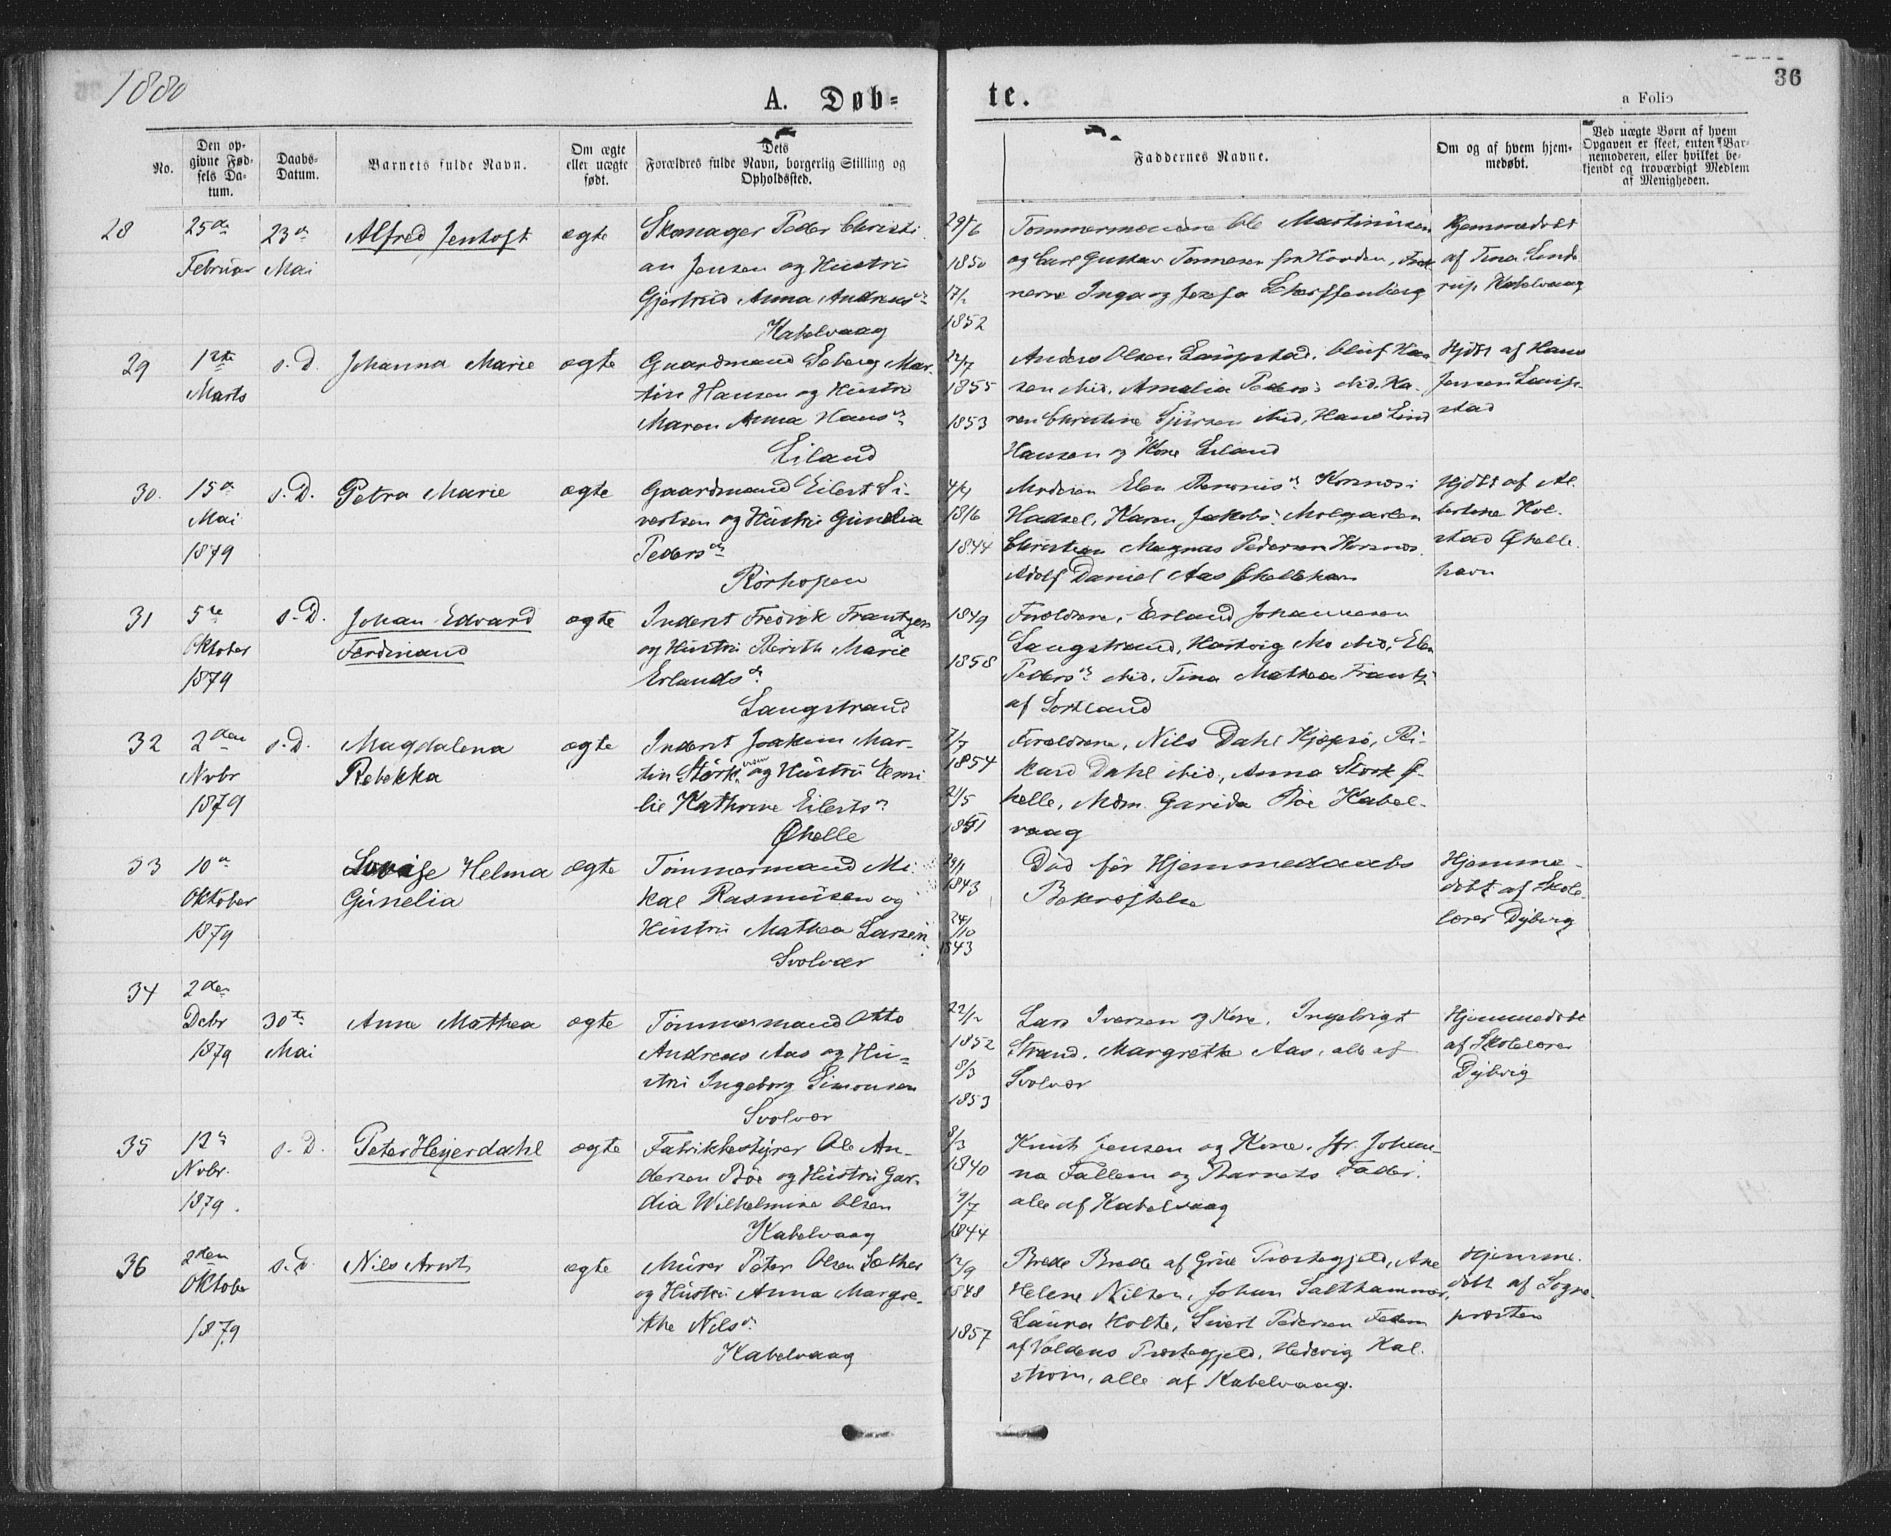 1880
A. Døb=
te.
36
a Folio
No.
Den op-
givne Fød-
sels Da-
tum.
Daabs-
Datum.
Barnets fulde Navn.
Om ægte
eller uægte
født.
Dets
Forældres fulde Navn, borgerlig Stilling og
Opholdssted.
Faddernes Navne.
Om og af hvem hjem-
medøbt.
Ved uægte Børn af hvem
Opgaven er skeet, enten Bar-
nemoderen, eller hvilket be-
kjendt og troværdigt Medlem
af Menigheden.
28
25de
Februar
23de
Mai
Alfred Jentoft
ægte
Skomager Peder Christi
an Jensen og Hustru
Gjertrud Anna Andreasdr
Kabelvaag
1850
1852
Tømmermændene Ole Martinusen
og Carl Gustav Tønnesen fra
Inga og Josefa
Hjemmedøbt
af Tina
Kabelvaag
29
12te
Marts
s. D.
Johanna Marie
ægte
Gaardmand Seberg Mar-
tin Hansen og Hustru
Maren Anna Hansdr
Eiland
22/7
1855
1853
Anders Olsen Laupstad, Oluf Han
sen ibid. Amalia Peders: ibid. Ka-
ren Christine ibid, Hans
Hansen og Kone Eiland
Hjdbt af Hans
Jensen Laup-
stad
30.
15de
Mai
1879
s. D.
Petra Marie
ægte
Gaardmand Eilert Si-
vertsen og Hustru Gunelia
Pedersdr
Rørhopen
1816
1844
Moderen Elen Korsnæs i
Hadsel, Karen Jakobs: Molgaarden
Christian Magnus Pedersen Korsnæs.
Adolf Daniel Aas Øhellehavn
Hjdbt af Al
bertine Kol-
stad Øhelle-
havn
31
5te
Oktober
1879
s. D.
Johan Edvard
Ferdinand
ægte
Inderst Fredrik Frantzen
og Hustru Berith Marie
Erlandsdr
Langstrand
1849
1858
Forældrene, Erland Johannesen
Langstrand, Hartvig Mo ibid, Elen
Pedersdr ibid. Tina Mathea Frantz:
af Sortland
32
2den
Nvbr
1879
s. D.
Magdalena
Rebekka
ægte
Inderst Joakim Mar-
tin Størk og Hustru Emi
lie Kathrine Eilertsdr
Øhelle
7/7
1854
21/5
1851
Forældrene, Nils Dahl Kjøpsø, Ri-
kard Dahl ibid, Anna Stork Ø-
helle, Mdm. Garida Bøe Kabel-
vaag
33
10de
Oktober
1879
Lovise Helma
Gunelia
ægte
Tømmermand Mi-
kal Rasmusen og
Hustru Mathea Larsen
Svolvær
1843
24/10
1843
Død før Hjemmedaabs
Bekræftelse
Hjemme-
døbt af Skole-
lærer Dybvig
34
2den
Dcbr
1879
30te
Mai
Anne Mathea
ægte
Tømmermand Otto
Andreas Aas og Hu-
stru Ingeborg Simonsen
Svolvær
22/12
1852
8/3
1853
Lars Iversen og Kone, Ingebrigt
Strand, Margrethe Aas, alle af
Svolvær
Hjemmedøbt
af Skolelærer
Dybvig
35
12te
Nvbr.
1879.
s. D.
Peter Heyerdahl
ægte
Fabrikbestyrer Ole An-
dersen Bøe og Hustru Gar-
dia Wilhelmine Olsen
Kabelvaag
8/3
1840
19/7
1844
Knut Jensen og Kone, Jfr. Johan-
na Fallem og Barnets Fader.
alle af Kabelvaag
36
2den
Oktober
1879
s. D.
Nils Arnt
ægte
Murer Peter Olsen Sæther
og Hustru Anna Margre-
the Nilsdr
Kabelvaag
12/9
1848
1857
Brede Brede af Grue Præstegjeld, Ane
Helene Nilsen, Johan Salthammer,
Laura Holte, Sivert Pedersen
af Voldens Præstegjeld, Hedevig Kal-
strøm, alle af Kabelvaag.
Hjemme-
døbt af Sogne-
præsten